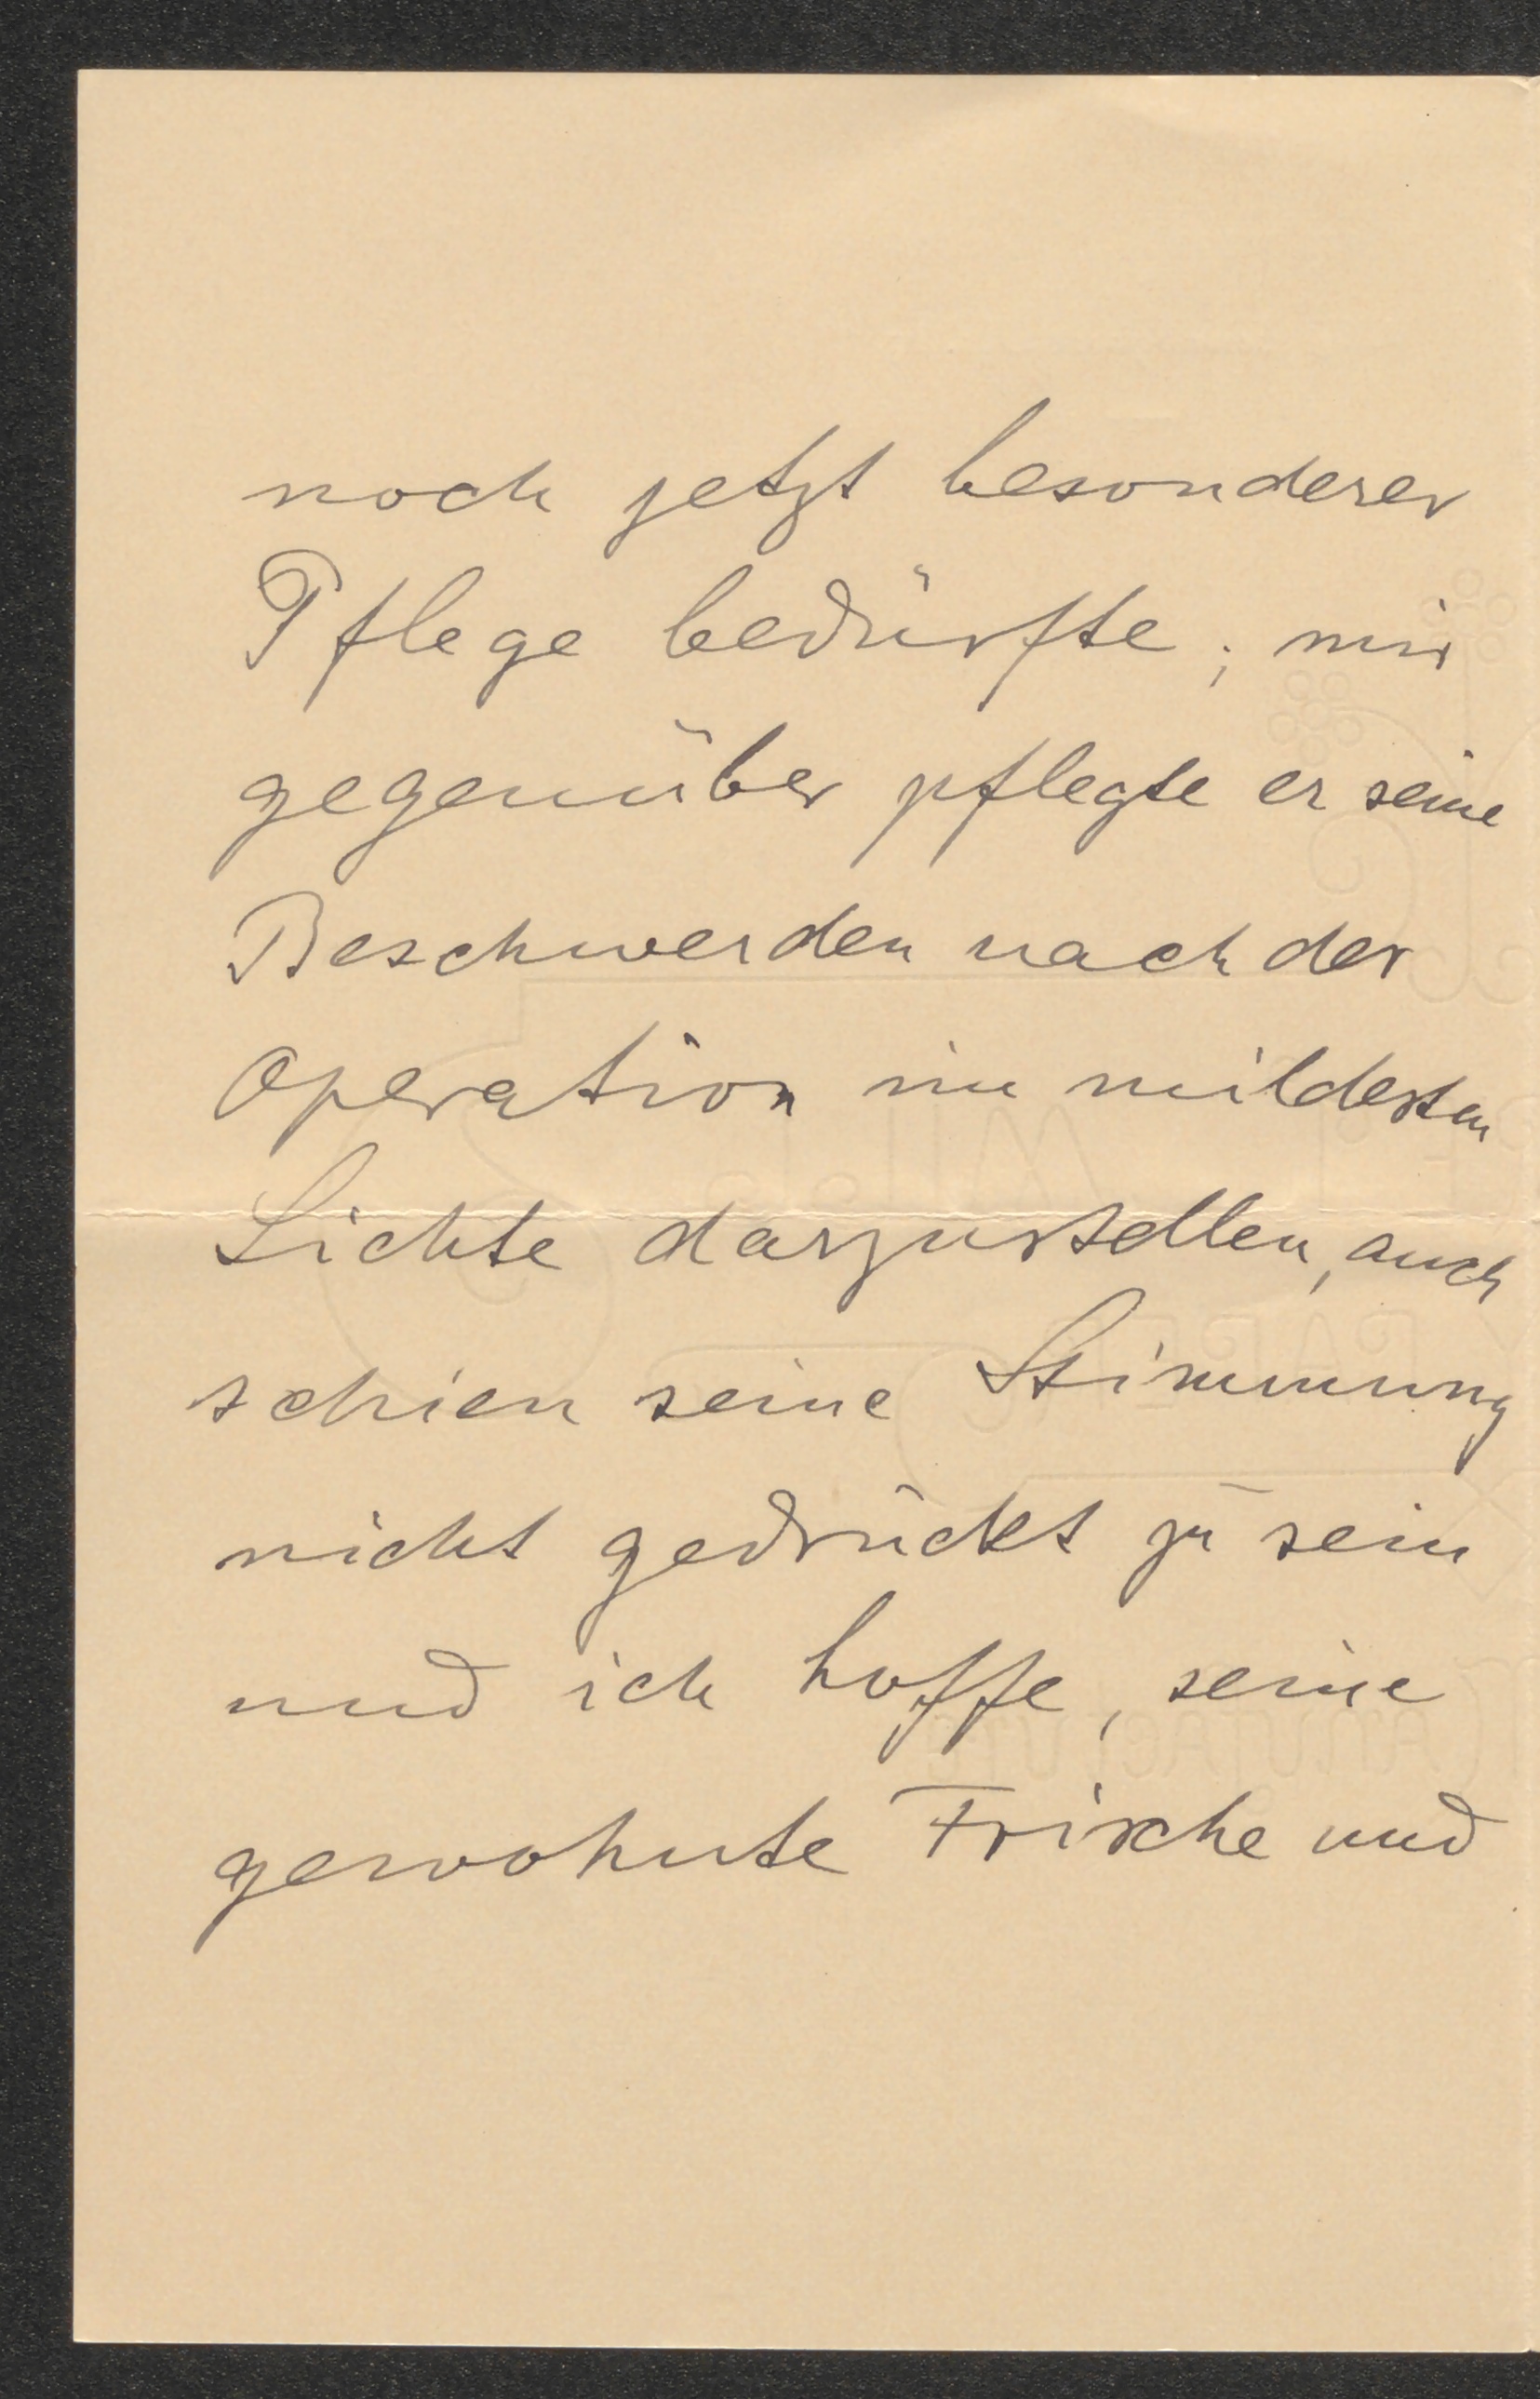 noch jetzt besonderer
Pflege bedürfte; mir
gegenüber pflegte er seine
Beschwerden nach der
Operation im mildesten
Lichte darzustellen, auch
schien seine Stimmung
nicht gedrückt zu sein
und ich hoffe, seine
gewohnte Frische und